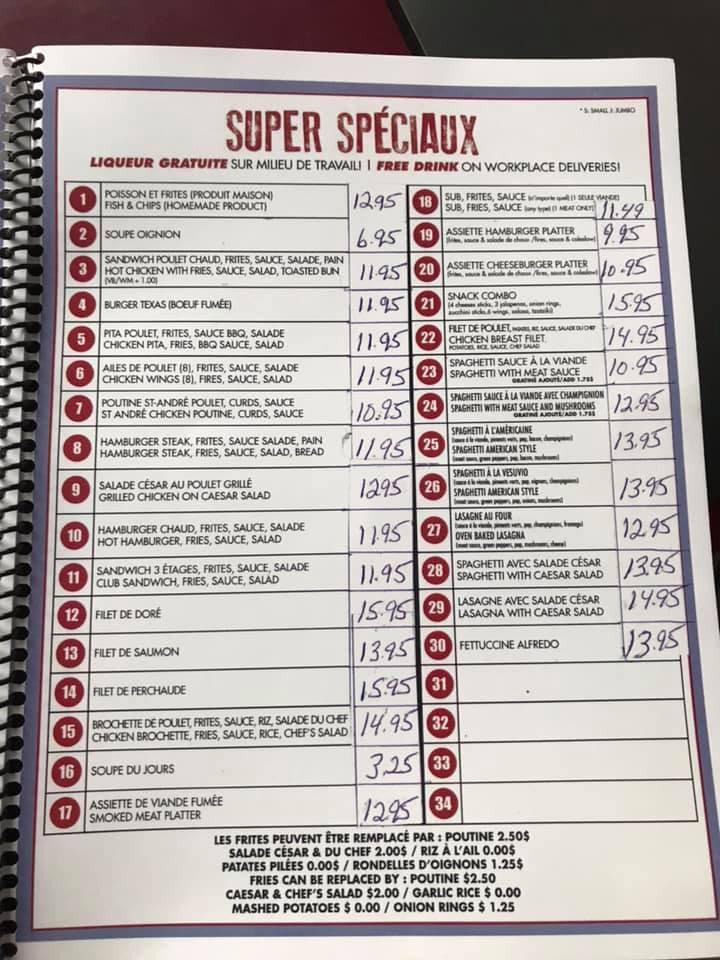 * S: SMALL J: JUMBO
SUPER SPÉCIAUX
LIQUEUR GRATUITE SUR MILIEU DE TRAVAIL! | FREE DRINK ON WORKPLACE DELIVERIES!
1 POISSON ET FRITES (PRODUIT MAISON) 12.95
FISH & CHIPS (HOMEMADE PRODUCT)
2 SOUPE OIGNION 6.95
3 SANDWICH POULET CHAUD, FRITES, SAUCE, SALADE, PAIN 11.95
HOT CHICKEN WITH FRIES, SAUCE, SALAD, TOASTED BUN
(VB/WM + 1.00)
4 BURGER TEXAS (BOEUF FUMÉE) 11.95
5 PITA POULET, FRITES, SAUCE BBQ, SALADE 11.95
CHICKEN PITA, FRIES, BBQ SAUCE, SALAD
6 AILES DE POULET (8), FRITES, SAUCE, SALADE 11.95
CHICKEN WINGS (8), FIRES, SAUCE, SALAD
7 POUTINE ST-ANDRÉ POULET, CURDS, SAUCE 10.95
ST ANDRÉ CHICKEN POUTINE, CURDS, SAUCE
8 HAMBURGER STEAK, FRITES, SAUCE SALADE, PAIN 11.95
HAMBURGER STEAK, FRIES, SAUCE, SALAD, BREAD
9 SALADE CÉSAR AU POULET GRILLÉ 1295
GRILLED CHICKEN ON CAESAR SALAD
10 HAMBURGER CHAUD, FRITES, SAUCE, SALADE 11.95
HOT HAMBURGER, FRIES, SAUCE, SALAD
11 SANDWICH 3 ÉTAGES, FRITES, SAUCE, SALADE 11.95
CLUB SANDWICH, FRIES, SAUCE, SALAD
12 FILET DE DORÉ 15.95
13 FILET DE SAUMON 13.95
14 FILET DE PERCHAUDE 15.95
15 BROCHETTE DE POULET, FRITES, SAUCE, RIZ, SALADE DU CHEF 14.95
CHICKEN BROCHETTE, FRIES, SAUCE, RICE, CHEF'S SALAD
16 SOUPE DU JOURS 3.25
17 ASSIETTE DE VIANDE FUMÉE 1295
SMOKED MEAT PLATTER
18 SUB, FRITES, SAUCE (n'importe quel) (1 SEULE VIANDE)
SUB, FRIES, SAUCE (any type) (1 MEAT ONLY) 11.49
19 ASSIETTE HAMBURGER PLATTER 9.95
(frites, sauce & salade de choux /fires, sauce & coleslaw)
20 ASSIETTE CHEESEBURGER PLATTER 10.95
(frites, sauce & salade de choux /fires, sauce & coleslaw)
21 SNACK COMBO 15.95
(4 cheeses sticks, 3 jalapenos, onion rings,
zucchini sticks, 6 wings, salsa, tzatziki)
22 FILET DE POULET, PATATES, RIZ, SAUCE, SALADE DU CHEF 14.95
CHICKEN BREAST FILET,
POTATOES, RICE, SAUCE, CHEF SALAD
23 SPAGHETTI SAUCE À LA VIANDE 10.95
SPAGHETTI WITH MEAT SAUCE
GRATINÉ AJOUTÉ/ADD 1.75$
24 SPAGHETTI SAUCE À LA VIANDE AVEC CHAMPIGNION 12.95
SPAGHETTI WITH MEAT SAUCE AND MUSHROOMS
GRATINÉ AJOUTÉ/ADD 1.75$
25 SPAGHETTI À L'AMÉRICAINE 13.95
(sauce à la viande, piments verts, pep, bacon, champignons)
SPAGHETTI AMERICAN STYLE
(meat sauce, green peppers, pep, bacon, mushrooms)
26 SPAGHETTI À LA VESUVIO 13.95
(sauce à la viande, piments verts, pep, oignons, champignons)
SPAGHETTI AMERICAN STYLE
(meat sauce, green peppers, pep, onions, mushrooms)
27 LASAGNE AU FOUR 12.95
(sauce à la viande, piments verts, pep, champignons, fromage)
OVEN BAKED LASAGNA
(meat sauce, green peppers, pep, mushrooms, cheese)
28 SPAGHETTI AVEC SALADE CÉSAR 13.95
SPAGHETTI WITH CAESAR SALAD
29 LASAGNE AVEC SALADE CÉSAR 14.95
LASAGNA WITH CAESAR SALAD
30 FETTUCCINE ALFREDO 13.95
31
32
33
34
LES FRITES PEUVENT ÊTRE REMPLACÉ PAR : POUTINE 2.50$
SALADE CÉSAR & DU CHEF 2.00$ / RIZ À L'AIL 0.00$
PATATES PILÉES 0.00$ / RONDELLES D'OIGNONS 1.25$
FRIES CAN BE REPLACED BY : POUTINE $2.50
CAESAR & CHEF'S SALAD $2.00 / GARLIC RICE $ 0.00
MASHED POTATOES $ 0.00 / ONION RINGS $ 1.25